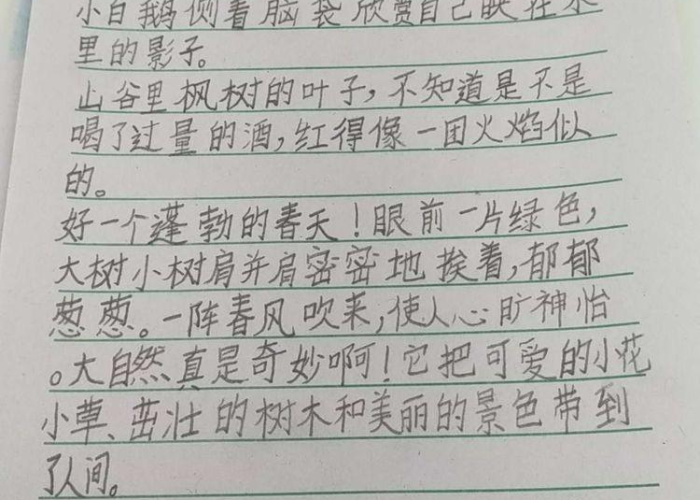 小白鹅侧着脑袋欣赏自己映在水
里的影子。
山谷里枫树的叶子,不知道是不是
喝了过量的酒,红得像一团火焰似
的。
好一个蓬勃的春天!眼前一片绿色,
大树小树肩并肩密密地挨着,郁郁
葱葱。一阵春风吹来,使人心旷神怡
。大自然真是奇妙啊!它把可爱的小花
小草、茁壮的树木和美丽的景色带到
了人间。